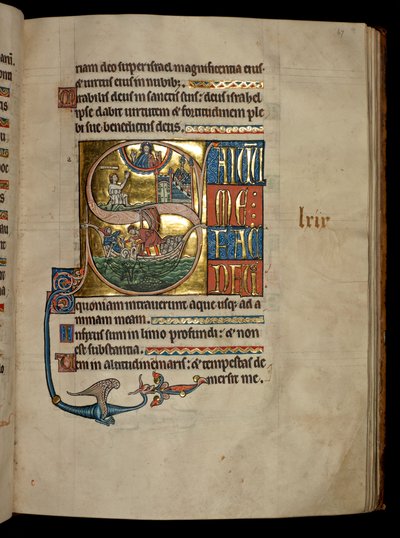 riam deo super israel magnificentia eius
& uirtus eius in nubib;
Mirabilis deus in sanctis suis: deus israhel
ipse dabit uirtutem & fortitudinem ple
bi sue benedictus deus.
SALUU
ME
FAC
DEUS
quoniam intrauerunt aque usq; ad a
nimam meam.
Infixus sum in limo profundi: & non
est substantia.
Ueni in altitudinem maris: & tempestas de
mersit me.
lxix